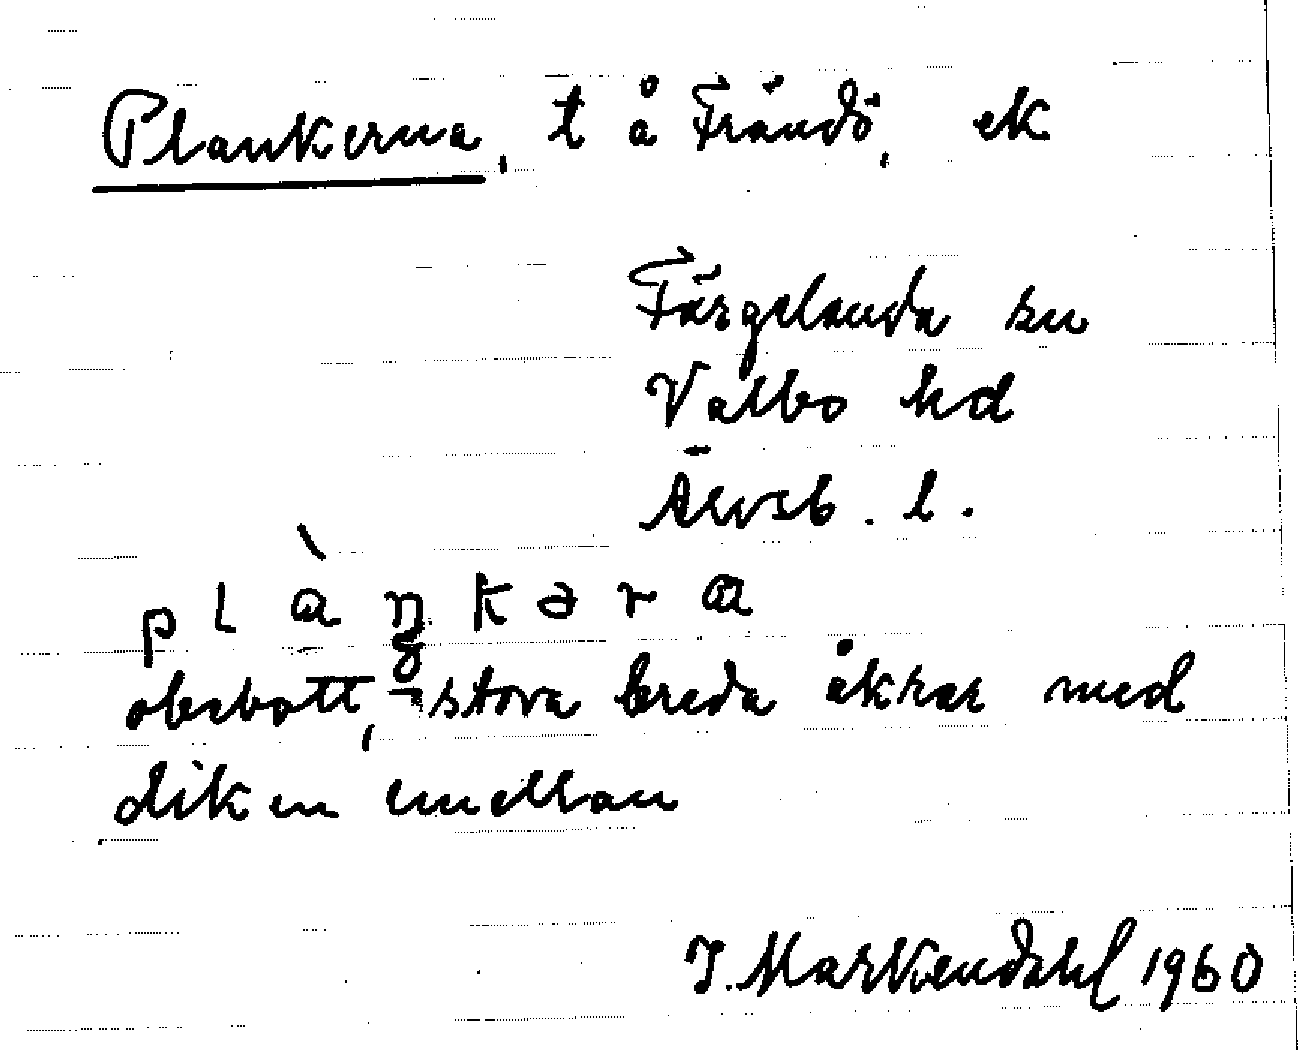 Plankerna, t å Frändö, ek
Färgelanda sn
Valbo hd
Älvsb. l.
plàŋkəra
obebott, stora breda åkrar med
diken emellan
J. Markendahl 1960